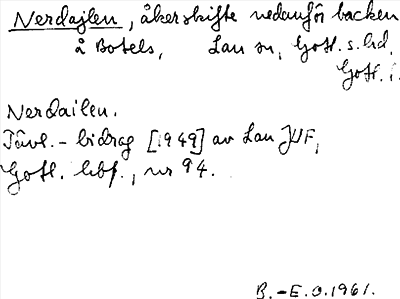 Nerdajlen, åkerskifte nedanför backen
å Botels, Lau sn, Gotl. s. hd.
Gotl. l.
Nerdailen.
Tävl.-bidrag [1949] av Lau JUF,
Gotl. hbf., nr 94.
B.-E.O. 1961.